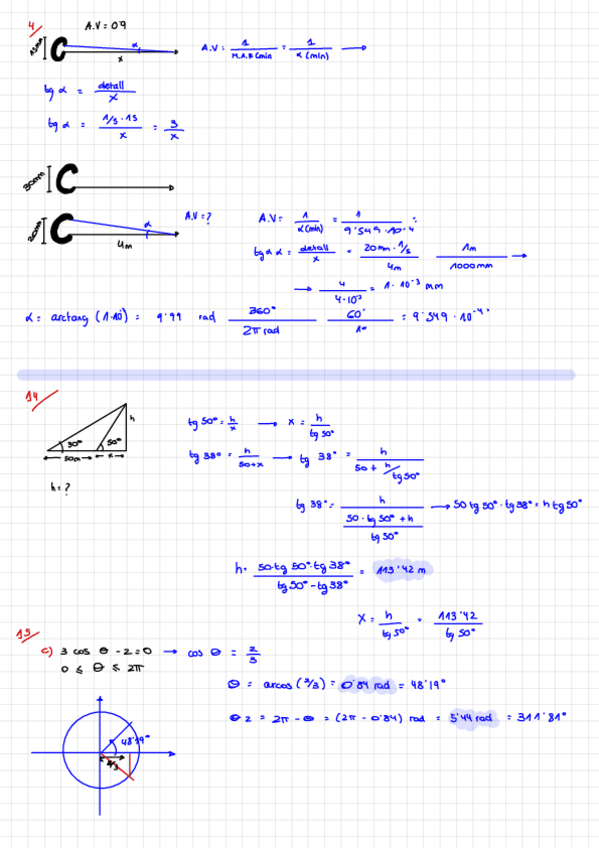 4/
A.V = 0'9
15mm
α
x
A.V = 1/M.A.R (min = 1/α (min) →
tg α = detall/x
tg α = 1/5 · 15/x = 3/x
30mm
20mm
α
4m
A.V = ?
A.V = 1/α (min) = 1/9'549 · 10⁻⁴ =
tg α = detall/x = 20mm · 1/5 / 4m 1m/1000mm →
→ 4/4·10³ = 1 · 10⁻³ mm
α = arctang (1·10³) = 9'99 rad 360°/2π rad 60'/1° = 9'549 · 10⁻⁴'
14/
h
50°
50m
x
h = ?
tg 50° = h/x → x = h/tg 50°
tg 38° = h/50+x → tg 38° = h/50 + h/tg 50°
tg 38° = h/50 · tg 50° + h/tg 50° → 50 tg 50° · tg 38° = h tg 50°
h = 50·tg 50° · tg 38°/tg 50° - tg 38° = 113'42 m
x = h/tg 50° = 113'42/tg 50°
15/
c) 3 cos θ - 2 = 0 → cos θ = 2/3
0 ≤ θ ≤ 2π
θ = arcos (2/3) = 0'84 rad = 48'19°
θ 2 = 2π - θ = (2π - 0'84) rad = 5'44 rad = 311'81°
48'19°
2/3